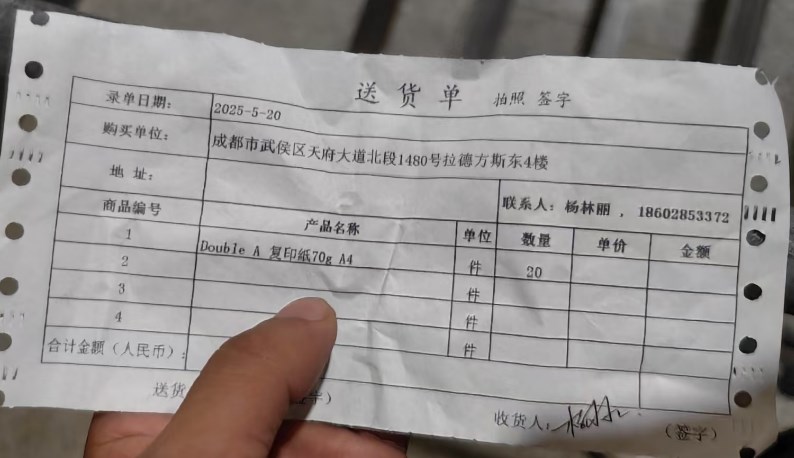 送货单 拍照 签字
录单日期： 2025-5-20
购买单位： 成都市武侯区天府大道北段1480号拉德方斯东4楼
地 址： 联系人：杨林丽 ，18602853372
商品编号 产品名称 单位 数量 单价 金额
1 Double A 复印纸70g A4 件 20
2 件
3 件
4 件
合计金额（人民币）：
送货 字） 收货人： （签字）